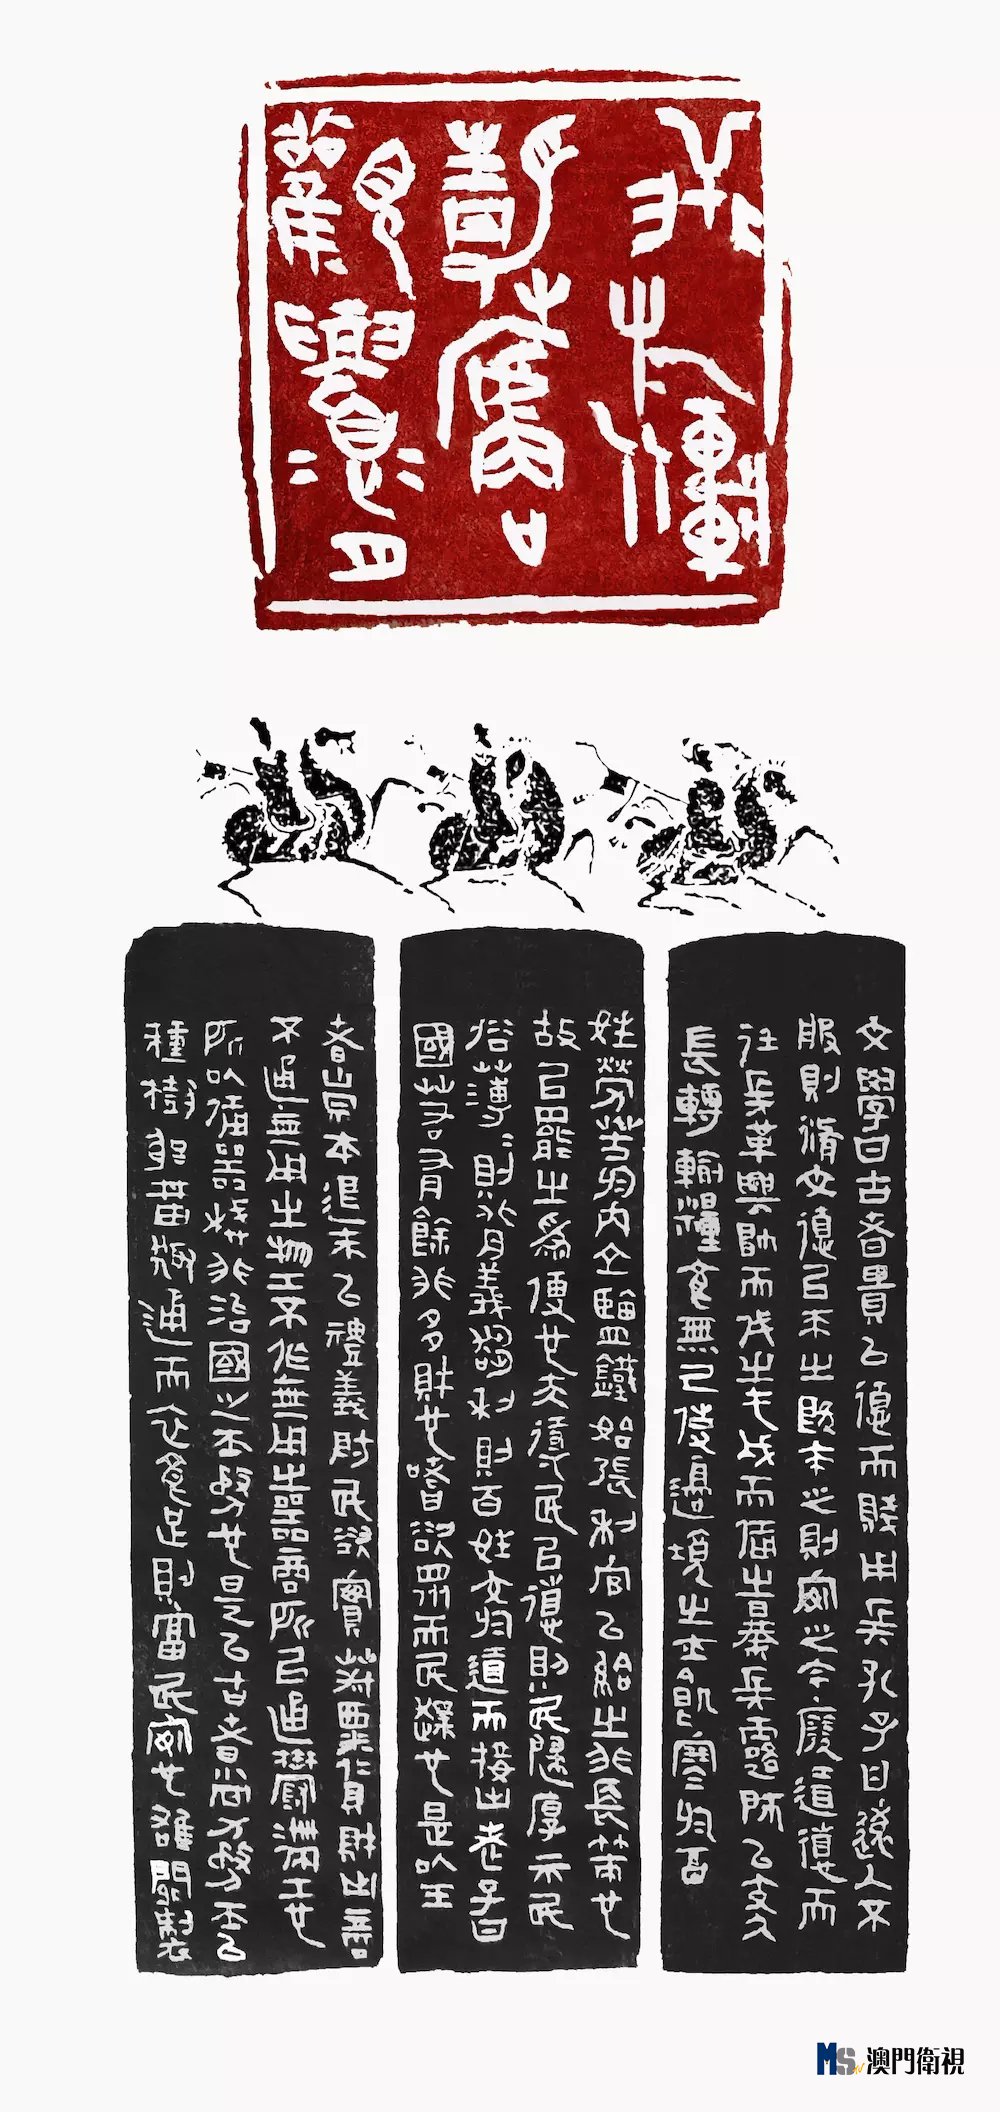 文學曰古者貴以德而賤用兵孔子曰遠人不
服則脩文德以來之既來之則安之今廢道德而
任兵革興師而伐之屯戍而備之暴兵露師以支久
長轉輸糧食無已使邊境之士飢寒於百
姓勞苦於內立鹽鐵始張利官以給之非長策也
故以罷之為便也夫導民以德則民歸厚示民
俗薄則背義趨利則百姓交於道而接市老子曰
國若有餘非多財也嗜欲眾而民躁也是以王
者崇本退末以禮義防民欲實菽粟貨財市商
不通無用之物工不作無用之器商所以通鬱滯工
所以備器械非治國之本務也是以古者尚力務本
種樹躬而衣食足則富民安也雖
MS 澳門衛視